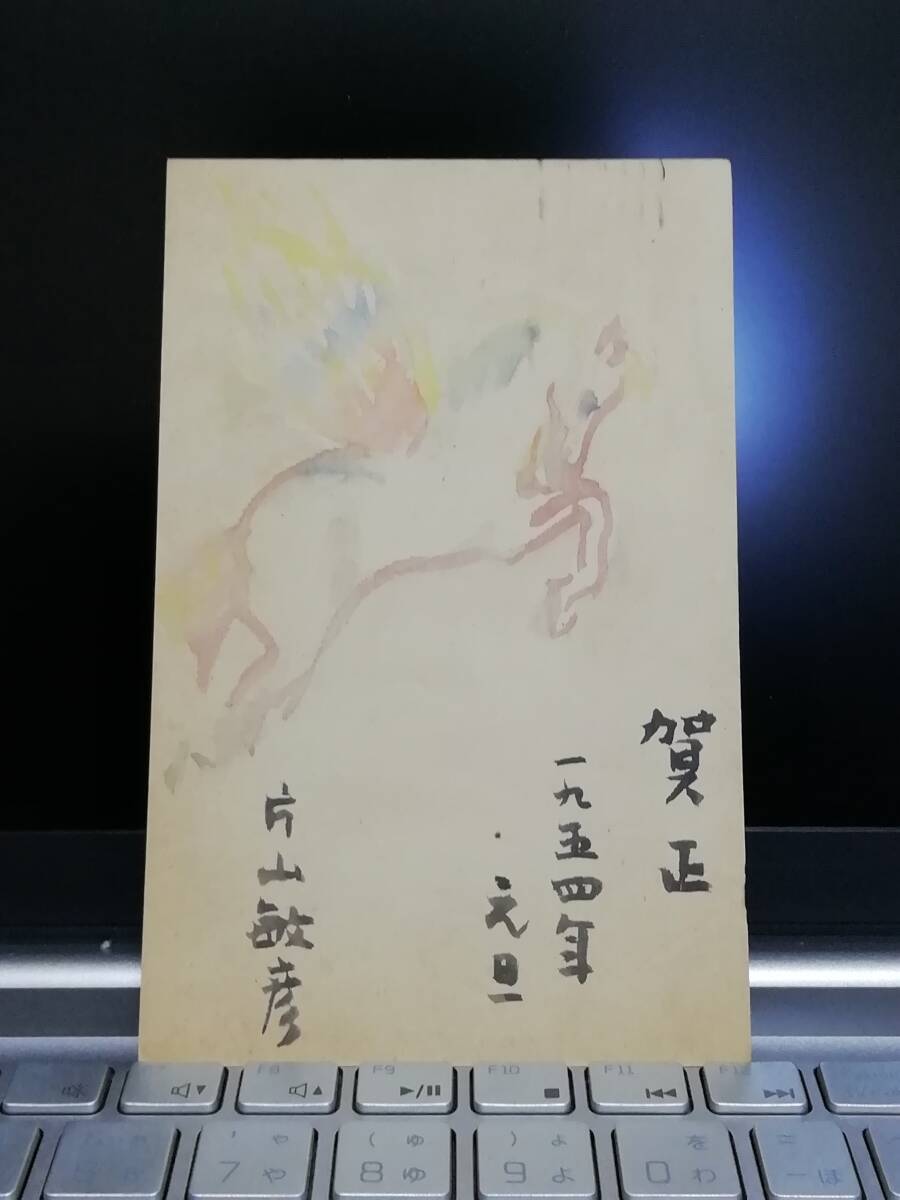 賀正
一九五四年
元旦
片山敏彦
F8
F9
F10
F11
' ゃ
7 や
( ゅ
8 ゆ
) ょ
9 よ
を
0 わ
=
- ほ